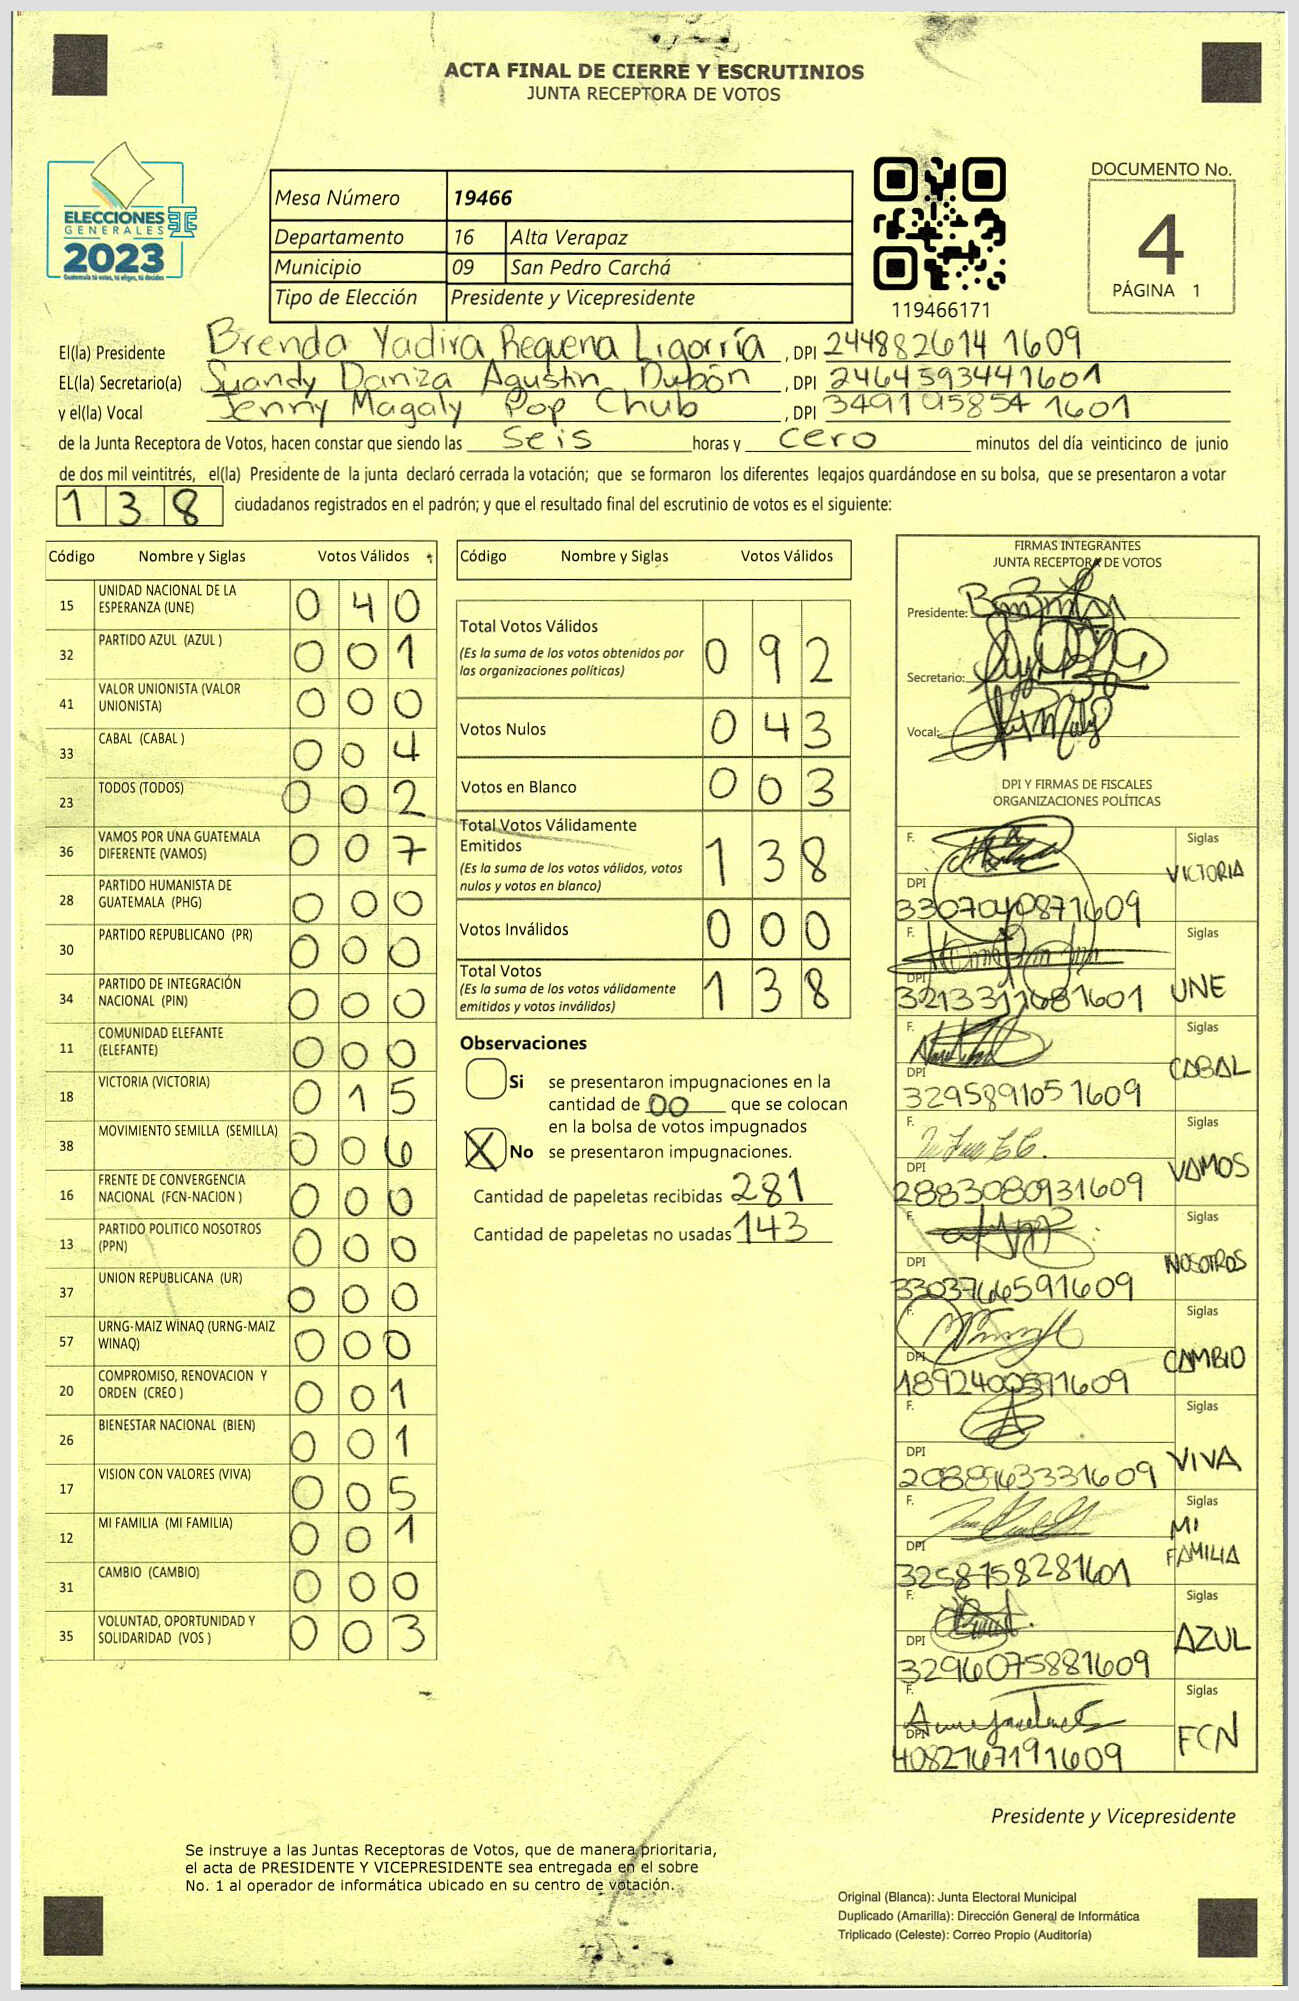 ACTA FINAL DE CIERRE Y ESCRUTINIOS
JUNTA RECEPTORA DE VOTOS
ELECCIONES
GENERALES
2023
Guatemala tú votas, tú eliges, tú decides
Mesa Número 19466
Departamento 16 Alta Verapaz
Municipio 09 San Pedro Carchá
Tipo de Elección Presidente y Vicepresidente
119466171
DOCUMENTO No.
4
PÁGINA 1
El(la) Presidente Brenda Yadira Requena Ligorría , DPI 244882614 1609
EL(la) Secretario(a) Suandy Daniza Agustin Dubón , DPI 2464593441601
y el(la) Vocal Jenny Magaly Pop Chub , DPI 349195854 1601
de la Junta Receptora de Votos, hacen constar que siendo las seis horas y cero minutos del día veinticinco de junio
de dos mil veintitrés, el(la) Presidente de la junta declaró cerrada la votación; que se formaron los diferentes legajos guardándose en su bolsa, que se presentaron a votar
138 ciudadanos registrados en el padrón; y que el resultado final del escrutinio de votos es el siguiente:
Código Nombre y Siglas Votos Válidos
15 UNIDAD NACIONAL DE LA ESPERANZA (UNE) 0 4 0
32 PARTIDO AZUL (AZUL ) 0 0 1
41 VALOR UNIONISTA (VALOR UNIONISTA) 0 0 0
33 CABAL (CABAL ) 0 0 4
23 TODOS (TODOS) 0 0 2
36 VAMOS POR UNA GUATEMALA DIFERENTE (VAMOS) 0 0 7
28 PARTIDO HUMANISTA DE GUATEMALA (PHG) 0 0 0
30 PARTIDO REPUBLICANO (PR) 0 0 0
34 PARTIDO DE INTEGRACIÓN NACIONAL (PIN) 0 0 0
11 COMUNIDAD ELEFANTE (ELEFANTE) 0 0 0
18 VICTORIA (VICTORIA) 0 1 5
38 MOVIMIENTO SEMILLA (SEMILLA) 0 0 6
16 FRENTE DE CONVERGENCIA NACIONAL (FCN-NACION ) 0 0 0
13 PARTIDO POLITICO NOSOTROS (PPN) 0 0 0
37 UNION REPUBLICANA (UR) 0 0 0
57 URNG-MAIZ WINAQ (URNG-MAIZ WINAQ) 0 0 0
20 COMPROMISO, RENOVACION Y ORDEN (CREO ) 0 0 1
26 BIENESTAR NACIONAL (BIEN) 0 0 1
17 VISION CON VALORES (VIVA) 0 0 5
12 MI FAMILIA (MI FAMILIA) 0 0 1
31 CAMBIO (CAMBIO) 0 0 0
35 VOLUNTAD, OPORTUNIDAD Y SOLIDARIDAD (VOS ) 0 0 3
Código Nombre y Siglas Votos Válidos
Total Votos Válidos 0 9 2
(Es la suma de los votos obtenidos por
las organizaciones políticas)
Votos Nulos 0 4 3
Votos en Blanco 0 0 3
Total Votos Válidamente
Emitidos 1 3 8
(Es la suma de los votos válidos, votos
nulos y votos en blanco)
Votos Inválidos 0 0 0
Total Votos 1 3 8
(Es la suma de los votos válidamente
emitidos y votos inválidos)
Observaciones
Si se presentaron impugnaciones en la
cantidad de 00 que se colocan
en la bolsa de votos impugnados
X No se presentaron impugnaciones.
Cantidad de papeletas recibidas 281
Cantidad de papeletas no usadas 143
FIRMAS INTEGRANTES
JUNTA RECEPTORA DE VOTOS
Presidente:
Secretario:
Vocal:
DPI Y FIRMAS DE FISCALES
ORGANIZACIONES POLÍTICAS
F. Siglas
VICTORIA
DPI
3307040871609
F. Siglas
DPI
3213311681601 UNE
F. Siglas
CABAL
DPI
3295891051609
F. Siglas
VAMOS
DPI
2883080931609
F. Siglas
NOSOTROS
DPI
3303766591609
F. Siglas
CAMBIO
DPI
1892400591609
F. Siglas
VIVA
DPI
2088963331609
F. Siglas
MI
FAMILIA
DPI
3258758281601
F. Siglas
AZUL
DPI
3296075881609
F. Siglas
FCN
DPI
4082767191609
Presidente y Vicepresidente
Se instruye a las Juntas Receptoras de Votos, que de manera prioritaria,
el acta de PRESIDENTE Y VICEPRESIDENTE sea entregada en el sobre
No. 1 al operador de informática ubicado en su centro de votación.
Original (Blanca): Junta Electoral Municipal
Duplicado (Amarilla): Dirección General de Informática
Triplicado (Celeste): Correo Propio (Auditoría)